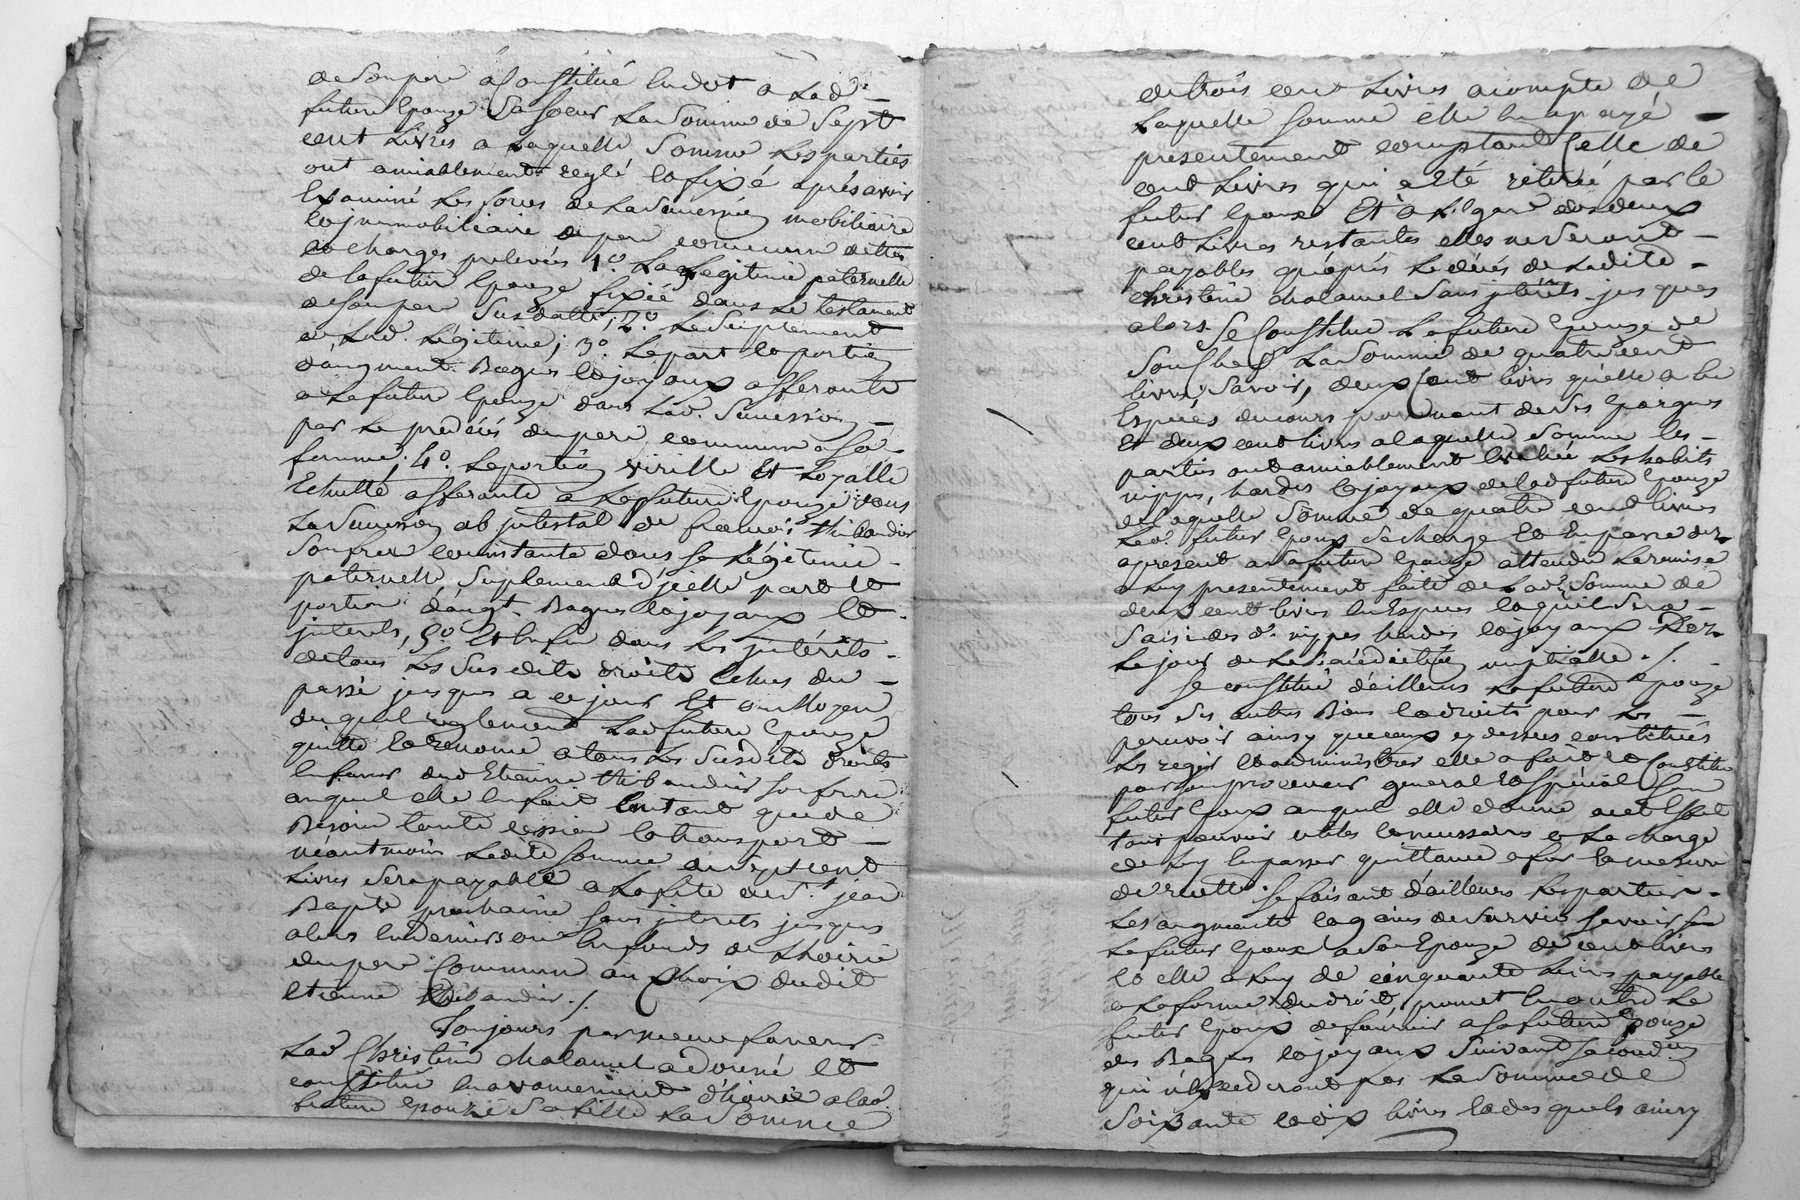 de son pere a Constitué en dot a lad.
future Epouze sa soeur La Somme de Sept
cent Livres a Laquelle Somme Les parties
ont amiablement reglé et fixé aprés avoir
Examiné Les forces de La Succession mobiliaire
et jmmobiliaire du pere commun dettes
et charges prelevées 1º. La Legitime paternelle
de la future Epouze fixée dans Le testament
de son pere Susdatté, 2º. Le Suplement
de Lad. Légitime; 3º. Le part et portion
d'augment Bagues et joyaux afferante
a La future Epouze dans Lad. Succession
par Le prédécés du pere commun a sa
femme, 4º. La portion virille Et Legalle
Echutte afferante a La future Epouze dans
La Succession ab jntestat de françois thibaudier
Son frere consistante dans Sa Légitime
paternelle, Suplement d'jcelle part et
portion d'augt. Bagues et joyaux et
jnterets, 5º. Et Enfin dans Les jntéréts
de tous Les Susdits droits Echus du
passé jusques a ce jour Et au Moyen
duquel reglement Lad future Epouze
quitte et renonce a tous Les Susdits droits
En faveur dud Etienne thibaudier son frere
auquel elle En fait Entant que de
Besoin toute cession et transport
néantmoins Ladite somme de Sept cent
Livres Sera payable a La fête de St. jean
Bapte prochaine sans jnterets jusques
alors En deniers ou En fonds de Lhoirie
du pere Commun au Choix dudit
Etienne thibaudier ./.
Toujours par meme faveur
Lad Christine chalamel a donné et
constitué En avancement d'hoirie a lad.
future Epouze Sa fille La Somme
de trois cent Livres a compte de
Laquelle Somme elle En a payé
presentement comptant Celle de
cent Livres qui a été retirée par le
futur Epoux Et a L'Egard des deux
cent Livres restantes elles ne Seront
payables qu'aprés Le décés de Ladite
christine chalamel Sans jnteréts jusques
alors. Se Constitue La future Epouze de
Son Chef La Somme de quatre cent
livres, Savoir, deux Cent livres qu'elle a En
Especes du cours provenant de Ses Epargnes
Et deux cent livres a laquelle Somme les
parties ont amiablement Evalué Les habits
nippes, hardes et joyaux de lad future Epouze
de laquelle Somme de quatre cent livres
Led. futur Epoux Se charge et En passe dez
apresent a sa future Epouze attendu La remise
a Luy presentement faite de Lad. Somme de
deux cent livres En Especes et quil Sera
Saisi des d. nippes hardes et joyaux Dez
Le jour de La Bénédiction nuptialle ./.
Se constitue d'ailleurs La future Epouze
tous Ses autres Biens et droits pour Les
percevoir ainsy que ceux cy dessus constitués
Les regir et administrer elle a fait et Constitue
pour son procureur general et Spécial Son
futur Epoux auquel elle donne a cet Effet
tout pouvoir utiles et necessaires a La charge
de Luy En passer quittance a fur et mesure
de recette. Se faisant d'ailleurs Les parties
Les augments et gains de Survie Savoir
Le futur Epoux a Son Epouze de cent livres
et elle a Luy de cinquante Livres payable
a La forme du droit, promet En outre Le
futur Epoux de fournir a Sa future Epouze
des Bagues et joyaux Suivant Sa condition
qui n'Excedront pas La Somme de
Soixante et dix livres et des quels ainsy